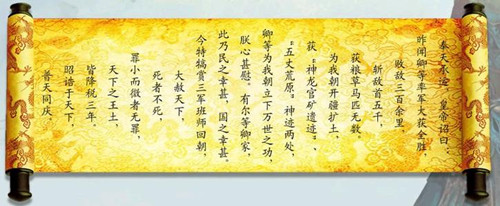 奉天承运，皇帝诏曰，
昨闻卿等率军大获全胜，
收敌三百余里，
斩敌首五千，
获粮草马匹无数，
为我朝开疆扩土，
获，“神龙官矿遗迹”、
“五丈荒原”，神迹两处，
卿等为我朝立下万世之功，
朕心甚慰。有尔等卿家，
此乃民之幸甚，国之幸甚。
今特犒赏三军班师回朝，
大赦天下，
死者不死，
罪小而微者无罪，
天下之王土，
皆降税三年，
昭诰于天下，
普天同庆，